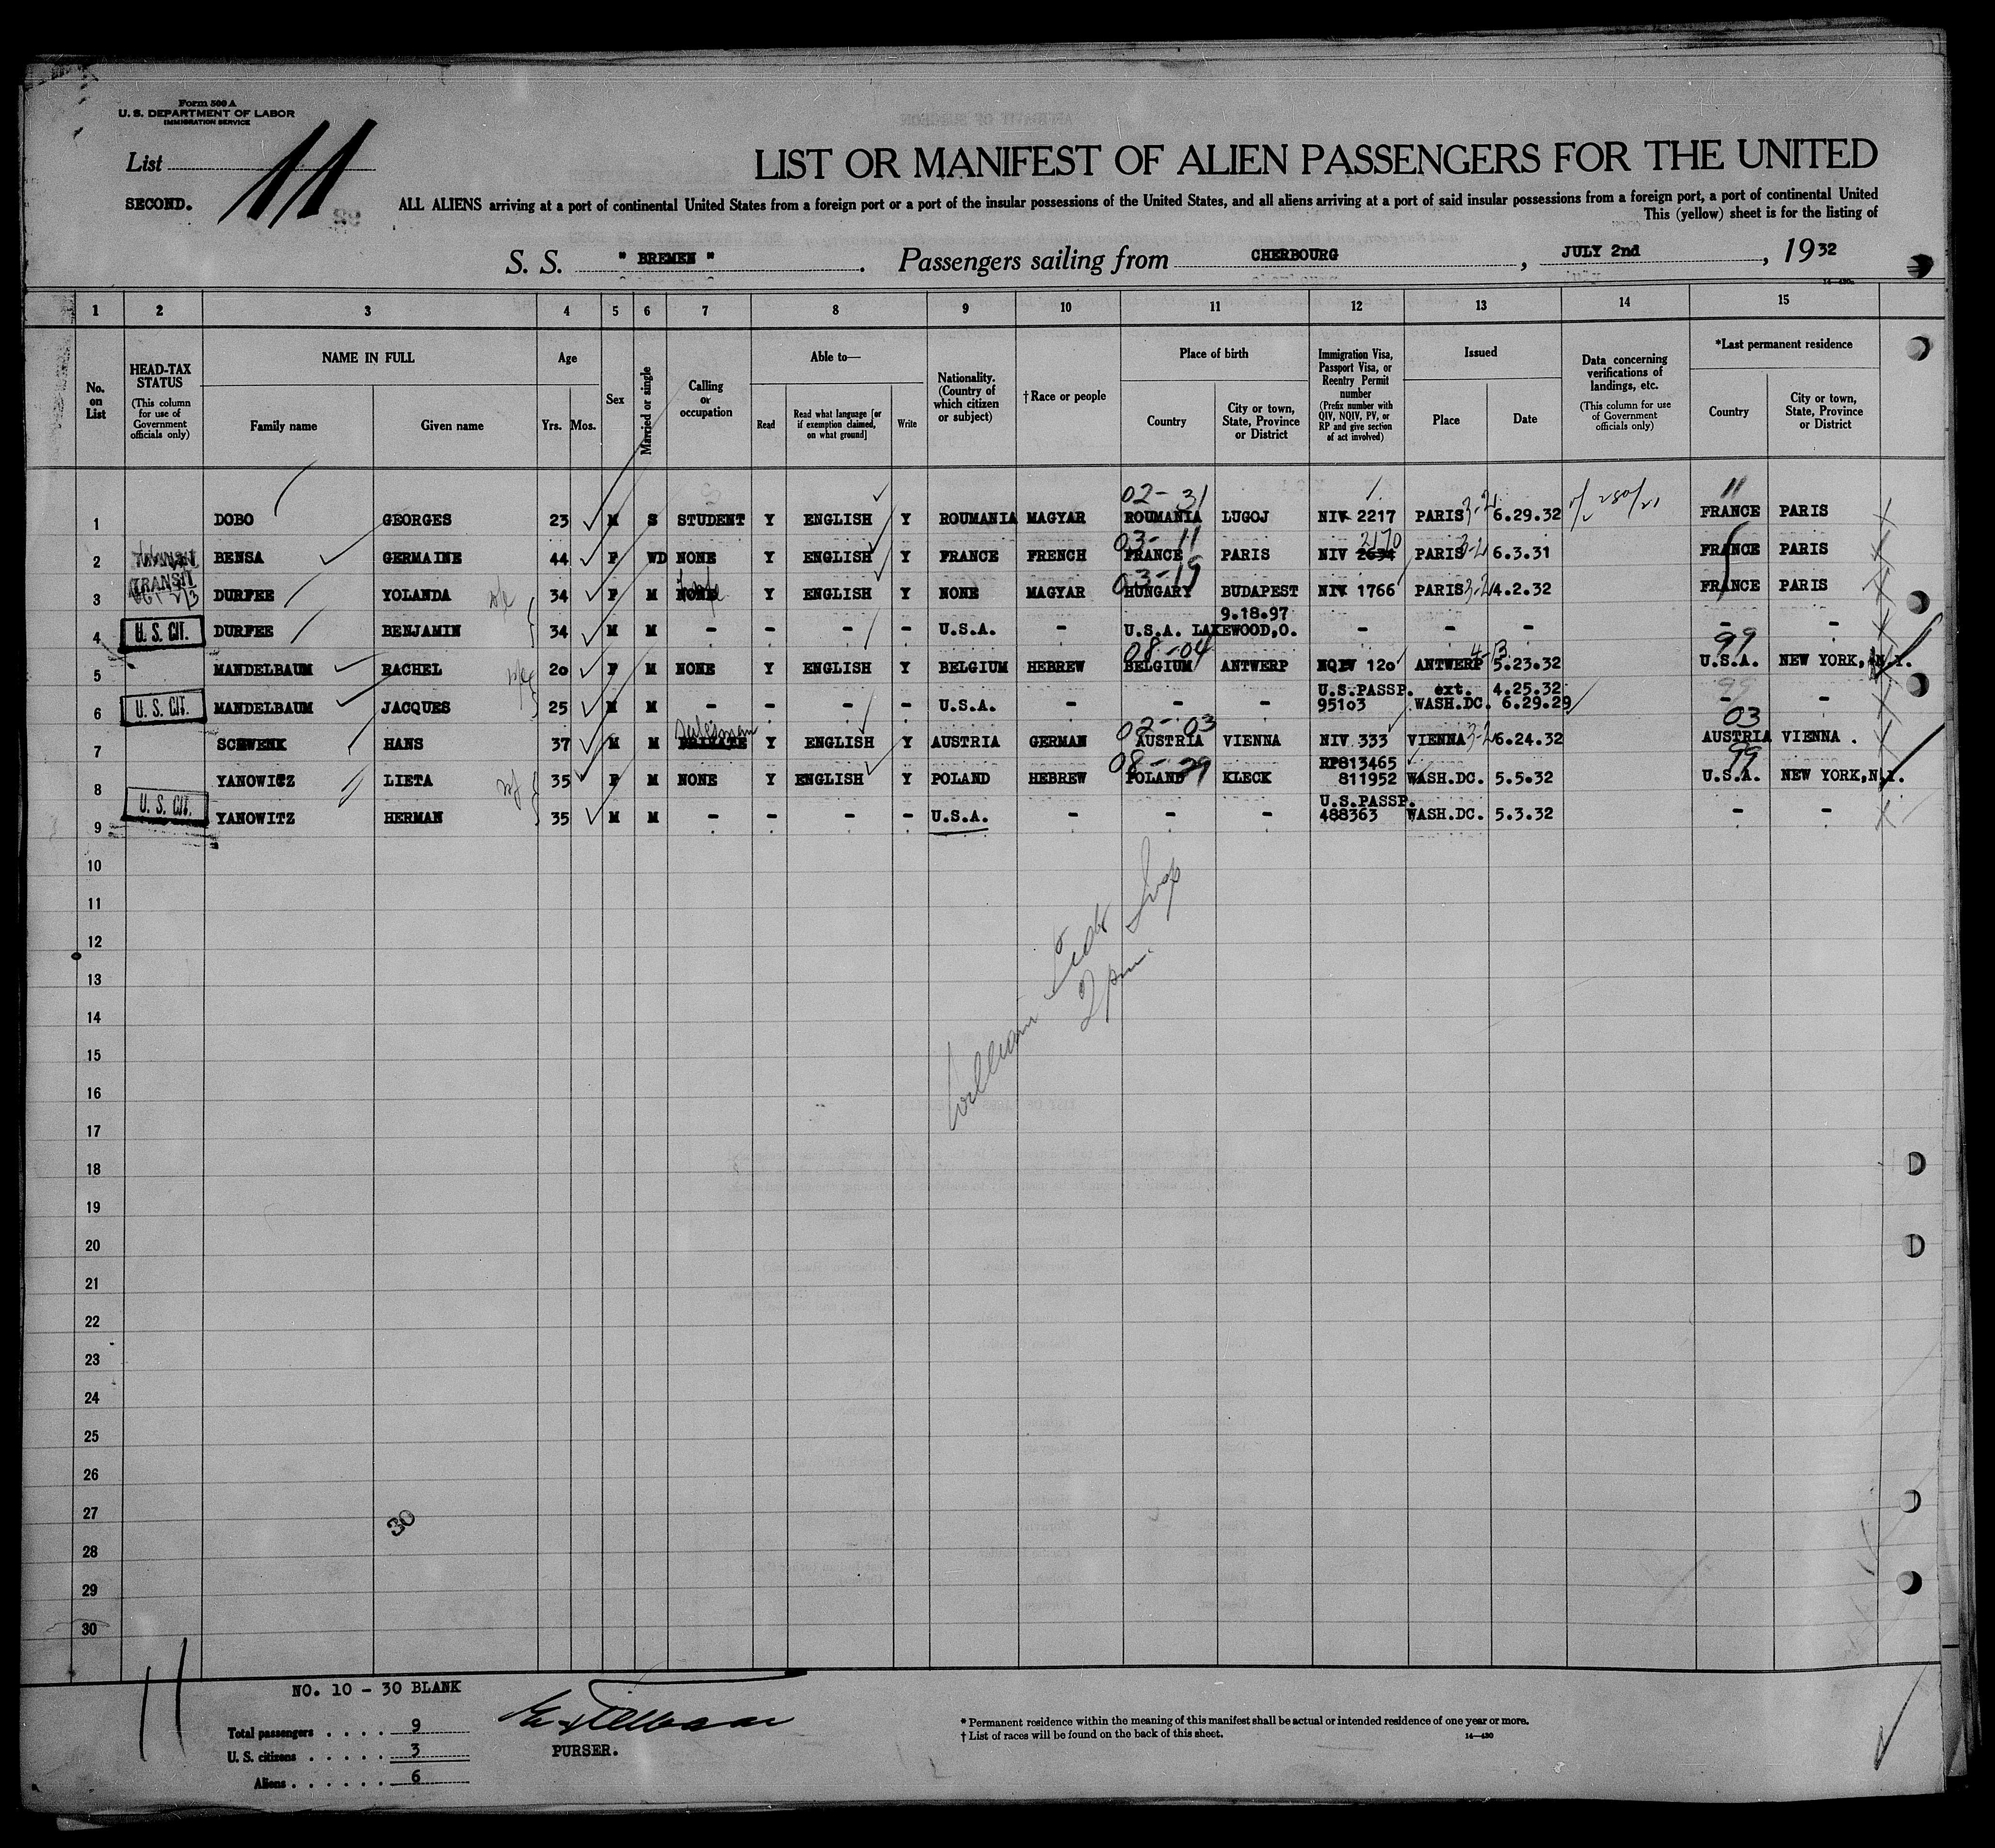 Form 500 A
U. S. DEPARTMENT OF LABOR
IMMIGRATION SERVICE
List 11
SECOND.
LIST OR MANIFEST OF ALIEN PASSENGERS FOR THE UNITED
ALL ALIENS arriving at a port of continental United States from a foreign port or a port of the insular possessions of the United States, and all aliens arriving at a port of said insular possessions from a foreign port, a port of continental United
This (yellow) sheet is for the listing of
S. S. " BREMEN ". Passengers sailing from CHERBOURG, JULY 2nd, 1932
1 2 3 4 5 6 7 8 9 10 11 12 13 14 15
No. on List
HEAD-TAX STATUS (This column for use of Government officials only)
NAME IN FULL Family name Given name
Age Yrs. Mos.
Sex
Married or single
Calling or occupation
Able to— Read Read what language [or if exemption claimed, on what ground] Write
Nationality. (Country of which citizen or subject)
† Race or people
Place of birth Country City or town, State, Province or District
Immigration Visa, Passport Visa, or Reentry Permit number (Prefix number with QIV, NQIV, PV, or RP and give section of act involved)
Issued Place Date
Data concerning verifications of landings, etc. (This column for use of Government officials only)
*Last permanent residence Country City or town, State, Province or District
02- 31 11
1 DOBO GEORGES 23 M S STUDENT Y ENGLISH Y ROUMANIA MAGYAR ROUMANIA LUGOJ NIV 2217 PARIS 3-2 6.29.32 FRANCE PARIS
03- 11 2170
2 BENSA GERMAINE 44 F WD NONE Y ENGLISH Y FRANCE FRENCH FRANCE PARIS NIV 2634 PARIS 3-2 6.3.31 FRANCE PARIS
TRANSIT 03-15
3 DURFEE YOLANDA 34 F M NONE Y ENGLISH Y NONE MAGYAR HUNGARY BUDAPEST NIV 1766 PARIS 3-2 4.2.32 FRANCE PARIS
9.18.97
4 U. S. CIT. DURFEE BENJAMIN 34 M M - - - - U.S.A. - U.S.A. LAKEWOOD,O. - - - - -
08-04 4-13 99
5 MANDELBAUM RACHEL 20 F M NONE Y ENGLISH Y BELGIUM HEBREW BELGIUM ANTWERP NQIV 120 ANTWERP 5.23.32 U.S.A. NEW YORK, N.Y.
U.S.PASSP. ext. 4.25.32
6 U. S. CIT. MANDELBAUM JACQUES 25 M M - - - - U.S.A. - - - 95103 WASH.DC. 6.29.29 - -
Salesman 02- 03 03
7 SCHWENK HANS 37 M M PRIVATE Y ENGLISH Y AUSTRIA GERMAN AUSTRIA VIENNA NIV 333 VIENNA 3-2 6.24.32 AUSTRIA VIENNA .
08-29 RP813465 99
8 YANOWITZ LIETA 35 F M NONE Y ENGLISH Y POLAND HEBREW POLAND KLECK 811952 WASH.DC. 5.5.32 U.S.A. NEW YORK,N.Y.
U.S.PASSP.
9 U. S. CIT. YANOWITZ HERMAN 35 M M - - - - U.S.A. - - - 488363 WASH.DC. 5.3.32 - -
10
11
12
13
14
15
16
17
18
19
20
21
22
23
24
25
26
27
28
29
30
William
2 pm.
30
11
NO. 10 - 30 BLANK
Total passengers . . . . 9
U. S. citizens . . . . . 3
Aliens . . . . . . 6
PURSER.
* Permanent residence within the meaning of this manifest shall be actual or intended residence of one year or more.
† List of races will be found on the back of this sheet.
14—430